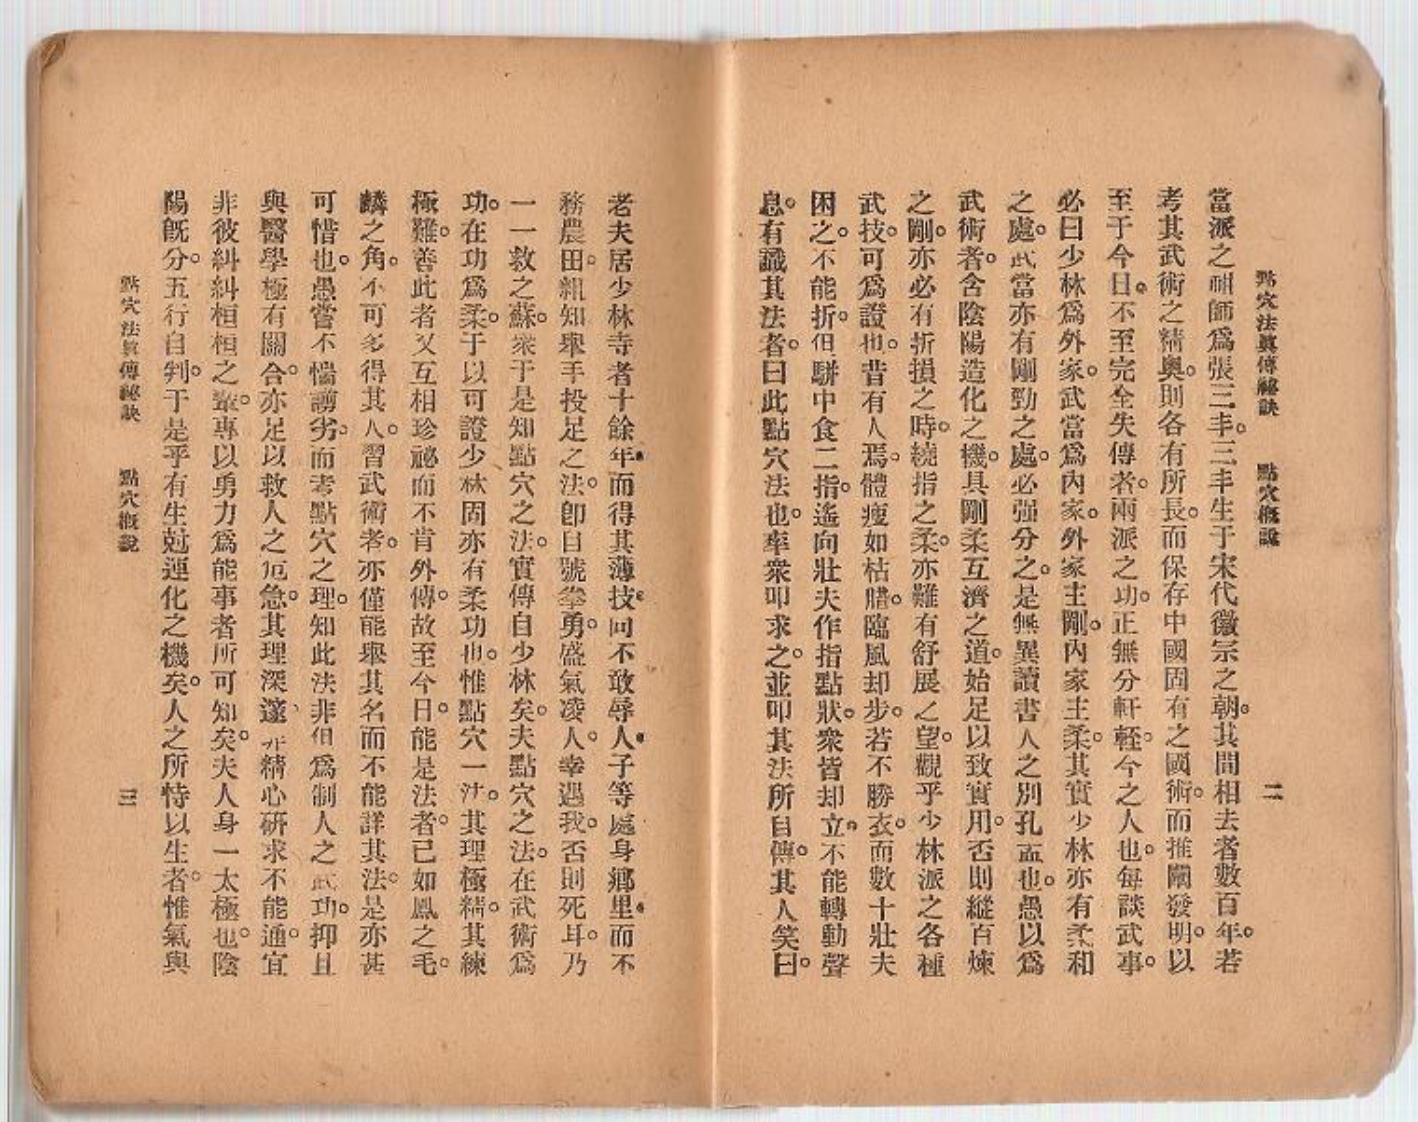 點穴法眞傳祕訣 點穴概說 二
當派之祖師爲張三丰。三丰生于宋代徽宗之朝。其間相去者數百年。若
考其武術之精奧。則各有所長。而保存中國固有之國術。而推闡發明。以
至于今日。不至完全失傳者。兩派之功正無分軒輊。今之人也。每談武事。
必曰少林爲外家。武當爲內家。外家主剛。內家主柔。其實少林亦有柔和
之處。武當亦有剛勁之處。必强分之。是無異讀書人之別孔孟也。愚以爲
武術者。含陰陽造化之機。具剛柔互濟之道。始足以致實用。否則縱百煉
之剛。亦必有折損之時。繞指之柔。亦難有舒展之望。觀乎少林派之各種
武技。可爲證也。昔有人焉。體瘦如枯腊。臨風却步。若不勝衣。而數十壯夫
困之。不能折。但駢中食二指。遙向壯夫作指點狀。衆皆却立。不能轉動聲
息。有識其法者。曰此點穴法也。率衆叩求之。並叩其法所自傳。其人笑曰。
老夫居少林寺者十餘年。而得其薄技。向不敢辱人。子等處身鄉里。而不
務農田。粗知舉手投足之法。卽自號拳勇。盛氣凌人。幸遇我。否則死耳。乃
一一救之蘇。衆于是知點穴之法。實傳自少林矣。夫點穴之法。在武術爲
功。在功爲柔。于以可證少林固亦有柔功也。惟點穴一法。其理極精。其練
極難。善此者又互相珍祕而不肯外傳。故至今日。能是法者。已如鳳之毛。
麟之角。不可多得其人。習武術者。亦僅能舉其名而不能詳其法。是亦甚
可惜也。愚嘗不惴譾劣。而考點穴之理。知此法非但爲制人之武功。抑且
與醫學極有關合。亦足以救人之厄急。其理深邃、非精心研求不能通。宜
非彼糾糾桓桓之輩。專以勇力爲能事者所可知矣。夫人身一太極也。陰
陽旣分。五行自判。于是乎有生尅運化之機矣。人之所恃以生者。惟氣與
點穴法眞傳祕訣 點穴概說 三